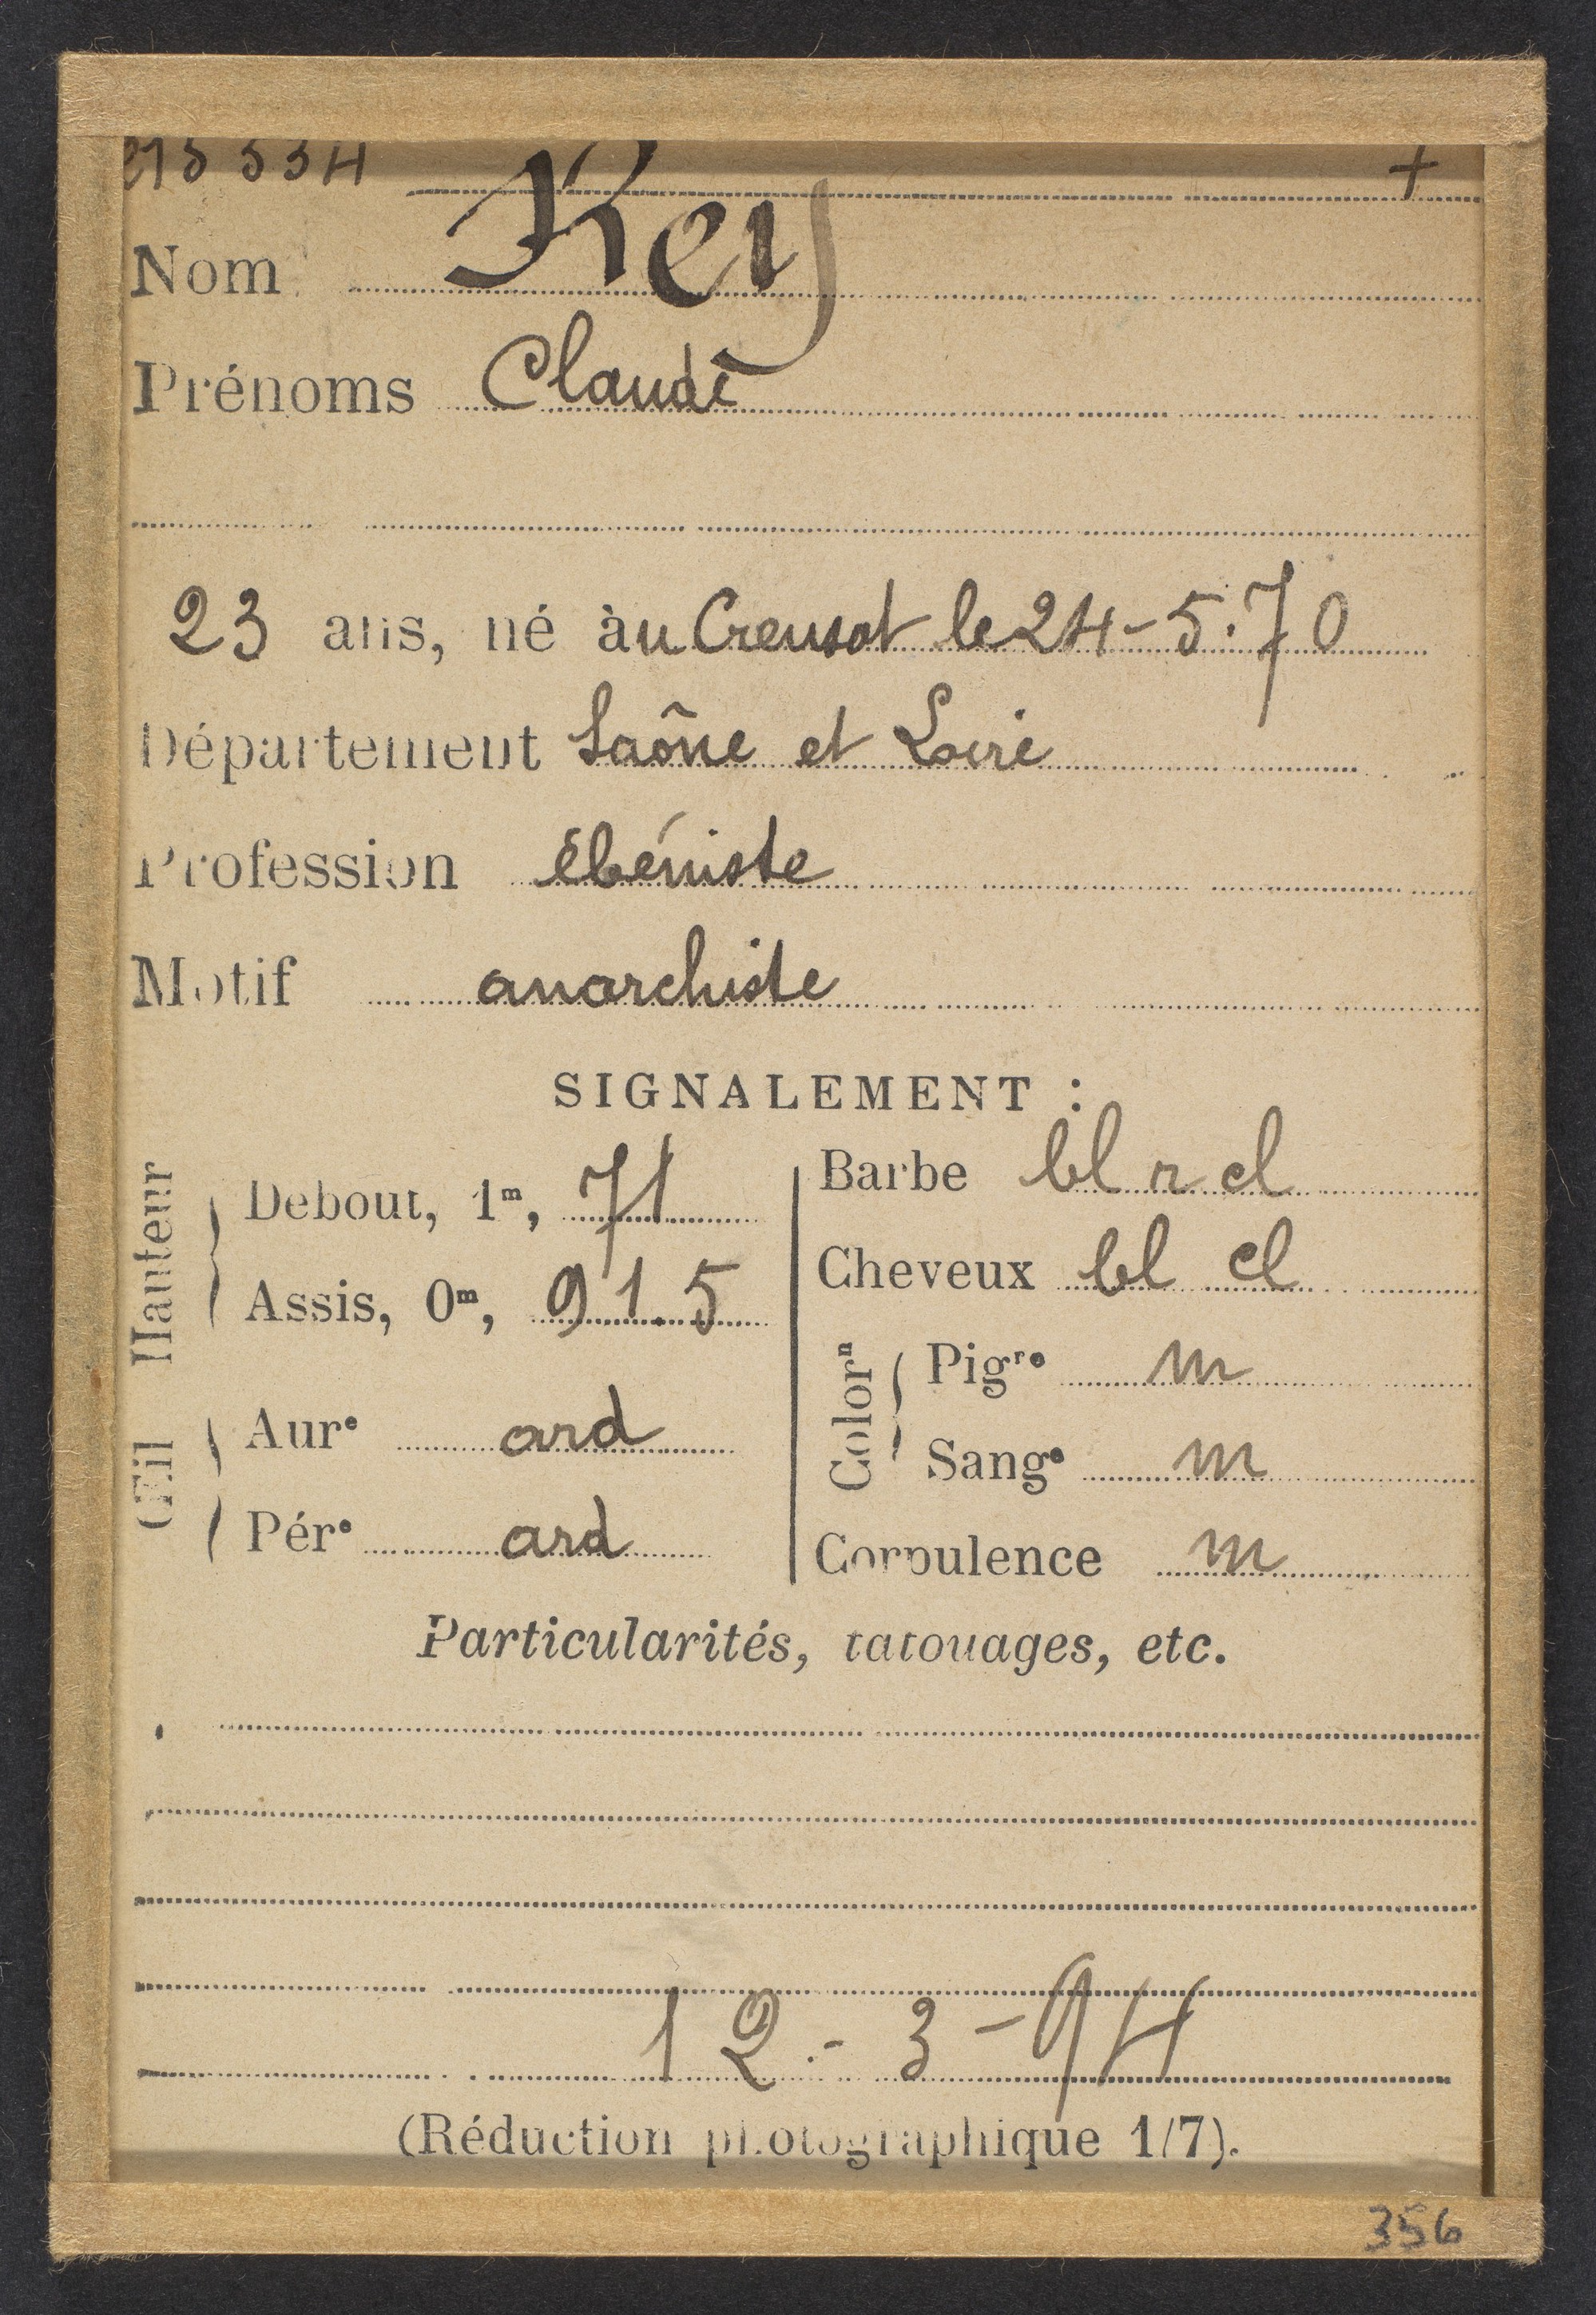 +
Nom Rey
Prénoms Claude
23 ans, né à au Creusot le 24-5-70
Département Saône et Loire
Profession ébéniste
Motif anarchiste
SIGNALEMENT :
Hauteur
Debout, 1m, 71
Assis, 0m, 91.5
Œil
Aure ard
Pére ard
Barbe bl r cl
Cheveux bl cl
Colorn
Pigre m
Sange m
Corpulence m
Particularités, tatouages, etc.
12-3-94
(Réduction photographique 1/7).
356